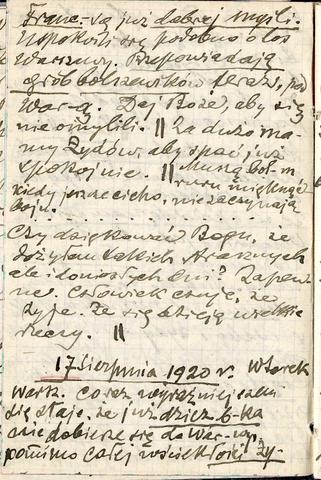 Franc-zą już dobrej myśli.
Uspokoili się podobno o los
Warszawy. Przepowiadają
grób bolszewików teraz, pod
War-ą. Daj Boże, aby się
nie omylili. || Za dużo ma-
my Żydów, aby spać już
spokojnie. || Muszą bol-m
rura mięknąć
kiedy jeszcze cicho, nie zaczynają
boju. . . . . . . . . . . . . . .
Czy dziękować Bogu, że
dożyłam takich strasznych
ale i doniosłych dni? Zapew
ne. Człowiek czuje, że
żyje. Że się dzieją wielkie
rzeczy. ||
17 Sierpnia 1920 r. Wtorek
Wark. coraz wyraźniej
się staje, że już dzicz b-ka
nie dobierze się do War-wy,
pomimo całej wściekłości ży-